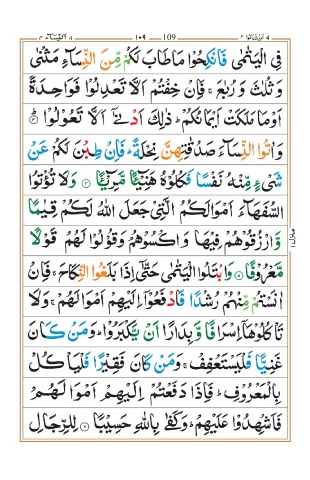 لن تنالوا ٤ ١٠٩ 109 النساء ٤
فِي الْيَتٰمٰى فَانْكِحُوْا مَا طَابَ لَكُمْ مِّنَ النِّسَآءِ مَثْنٰى
وَثُلٰثَ وَرُبٰعَ ۚ فَاِنْ خِفْتُمْ اَلَّا تَعْدِلُوْا فَوَاحِدَةً
اَوْ مَا مَلَكَتْ اَيْمَانُكُمْ ؕ ذٰلِكَ اَدْنٰٓى اَلَّا تَعُوْلُوْا ؕ
وَاٰتُوا النِّسَآءَ صَدُقٰتِهِنَّ نِحْلَةً ؕ فَاِنْ طِبْنَ لَكُمْ عَنْ
شَيْءٍ مِّنْهُ نَفْسًا فَكُلُوْهُ هَنِيْٓـًٔا مَّرِيْٓـًٔا ۝ وَلَا تُؤْتُوا
السُّفَهَآءَ اَمْوَالَكُمُ الَّتِيْ جَعَلَ اللّٰهُ لَكُمْ قِيٰمًا
وَّارْزُقُوْهُمْ فِيْهَا وَاكْسُوْهُمْ وَقُوْلُوْا لَهُمْ قَوْلًا
مَّعْرُوْفًا ۝ وَابْتَلُوا الْيَتٰمٰى حَتّٰٓى اِذَا بَلَغُوا النِّكَاحَ ۚ فَاِنْ
اٰنَسْتُمْ مِّنْهُمْ رُشْدًا فَادْفَعُوْٓا اِلَيْهِمْ اَمْوَالَهُمْ ۚ وَلَا
تَاْكُلُوْهَآ اِسْرَافًا وَّبِدَارًا اَنْ يَّكْبَرُوْا ؕ وَمَنْ كَانَ
غَنِيًّا فَلْيَسْتَعْفِفْ ۚ وَمَنْ كَانَ فَقِيْرًا فَلْيَاْكُلْ
بِالْمَعْرُوْفِ ؕ فَاِذَا دَفَعْتُمْ اِلَيْهِمْ اَمْوَالَهُمْ
فَاَشْهِدُوْا عَلَيْهِمْ ؕ وَكَفٰى بِاللّٰهِ حَسِيْبًا ۝ لِلرِّجَالِ
منزل ١